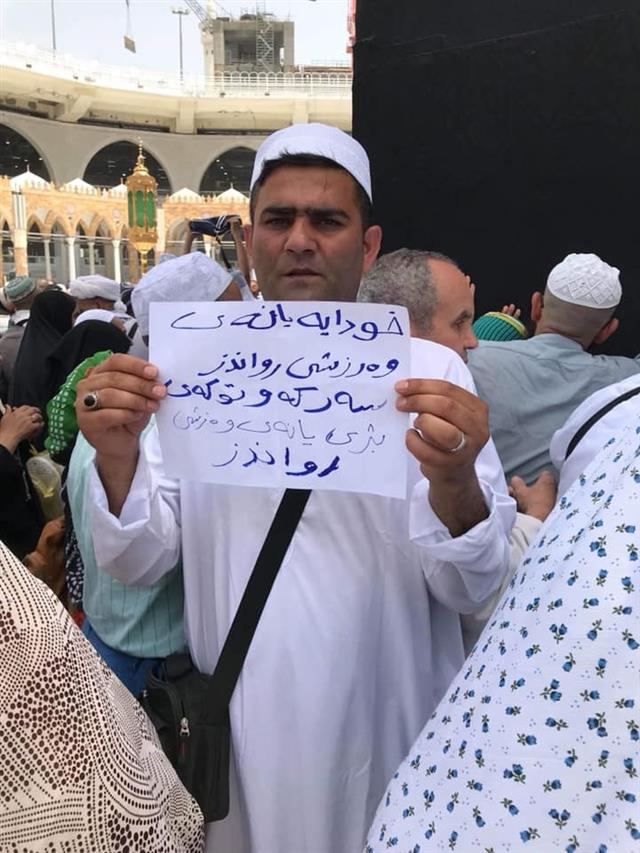 خودایە یانەی
وەرزشی رواندز
سەرکەوتوکەی
بژی یانەی وەرزشی
رواندز